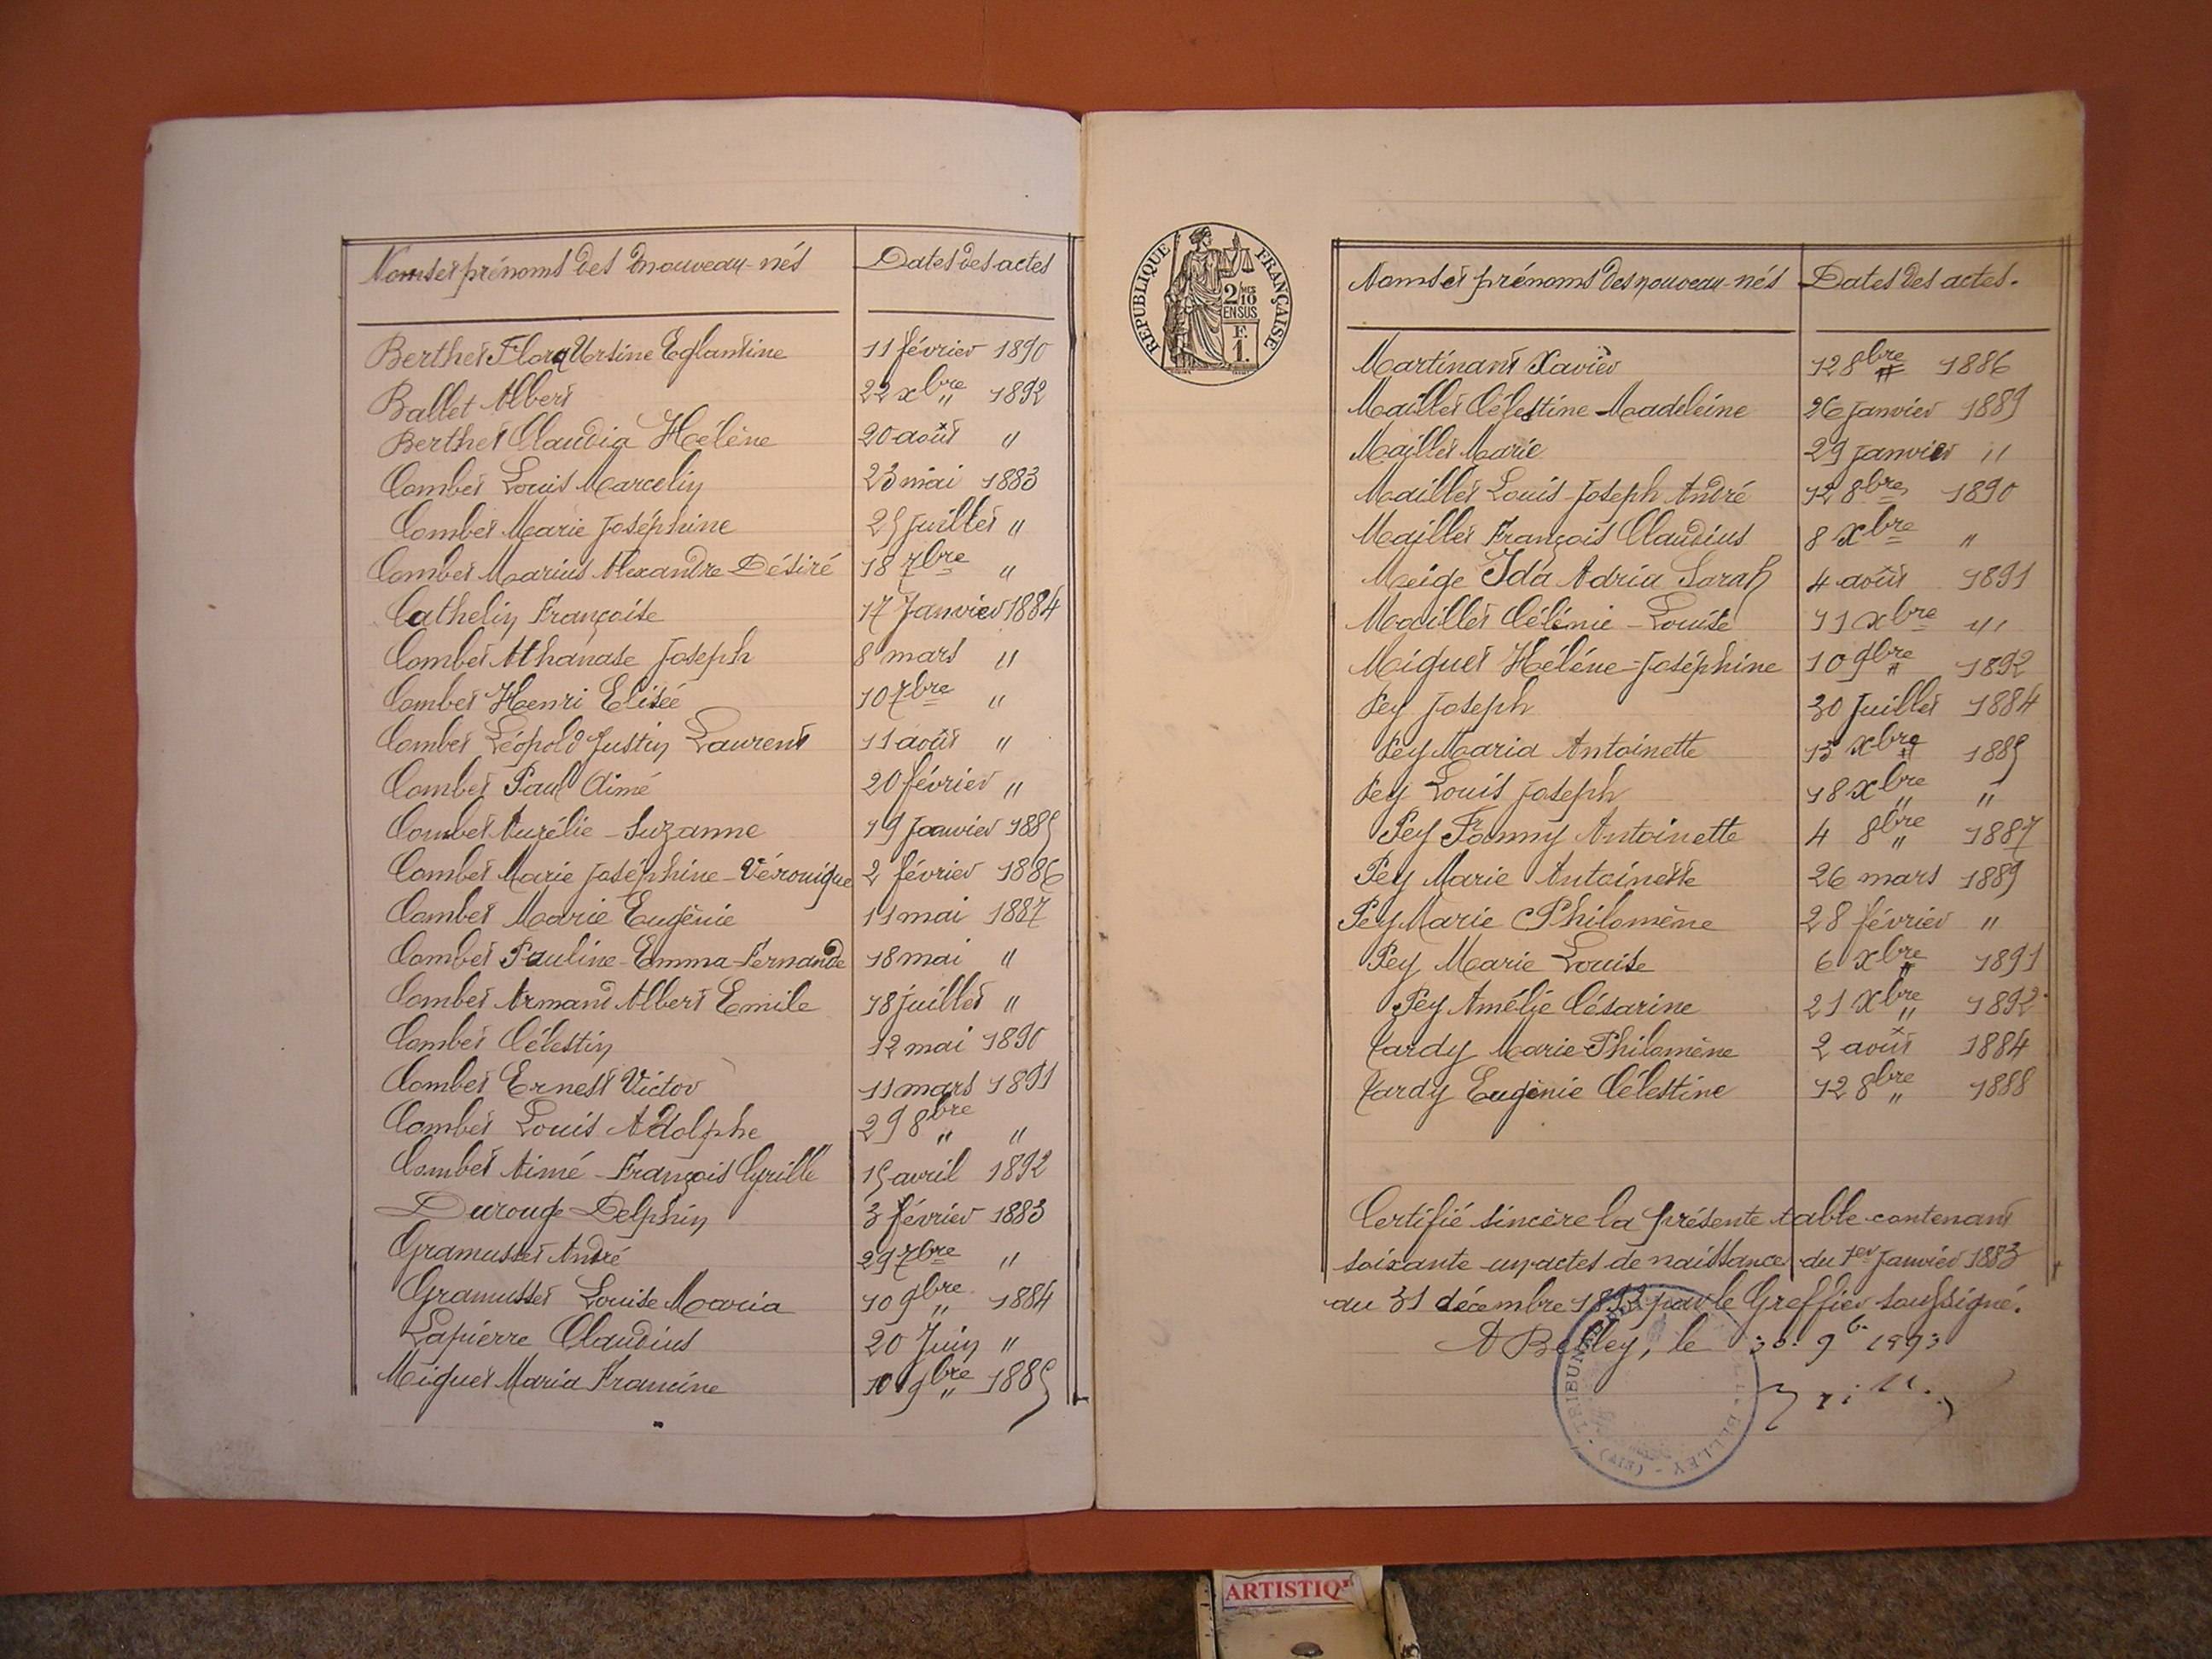 Noms et prénoms des nouveau-nés Dates des actes
Berthet Flora Ursine Eglantine 11 février 1890
Ballet Albert 22 xbre " 1892
Berthet Claudia Hélène 20 août "
Combet Louis Marcelin 23 mai 1883
Combet Marie Joséphine 25 juillet "
Combet Marius Alexandre Désiré 18 7bre "
Cathelin Françoise 17 Janvier 1884
Combet Athanase Joseph 8 mars "
Combet Henri Elisée 10 7bre "
Combet Léopold Justin Laurent 11 août "
Combet Paul Aimé 20 février "
Combet Aurélie - Suzanne 19 Janvier 1885
Combet Marie Joséphine - Véronique 2 février 1886
Combet Marie Eugènie 11 mai 1887
Combet Pauline - Emma - Fernande 18 mai "
Combet Armand Albert Emile 18 juillet "
Combet Célestin 12 mai 1890
Combet Ernest Victor 11 mars 1891
Combet Louis Adolphe 29 8bre " "
Combet Aimé - François Cyrille 15 avril 1892
Durouge Delphin 3 février 1883
Gramusset André 29 7bre "
Gramusset Louise Maria 10 9bre " 1884
Lapierre Claudius 20 Juin "
Miguet Maria Francine 10 9bre " 1885
REPUBLIQUE FRANÇAISE
2/10 EN SUS
F. 1.
Noms et prénoms des nouveau-nés Dates des actes.
Martinant Xavier 12 8bre 1886
Maillet Célestine - Madeleine 26 janvier 1889
Maillet Marie 29 janvier "
Maillet Louis - Joseph André 12 8bre 1890
Maillet François Claudius 8 Xbre "
Meige Ida Adria Sarah 4 août 1891
Maillet Célénie - Louise 11 xbre "
Miguet Hélène - Joséphine 10 9bre " 1892
Pey Joseph 30 Juillet 1884
Pey Maria Antoinette 13 xbre " 1885
Pey Louis Joseph 18 xbre " "
Pey Fanny Antoinette 4 8bre " 1887
Pey Marie Antoinette 26 mars 1889
Pey Marie Philomène 28 février "
Pey Marie Louise 6 Xbre " 1891
Pey Amélie Césarine 21 Xbre " 1892
Tardy Marie Philomène 2 août 1884
Tardy Eugènie Célestine 12 8bre " 1888
Certifié sincère la présente table contenant
soixante un actes de naissance du 1er Janvier 1883
au 31 décembre 1892 par le Greffier soussigné.
A Belley, le 30 9b. 1893
TRIBUNAL BELLEY (AIN)
ARTISTIQ